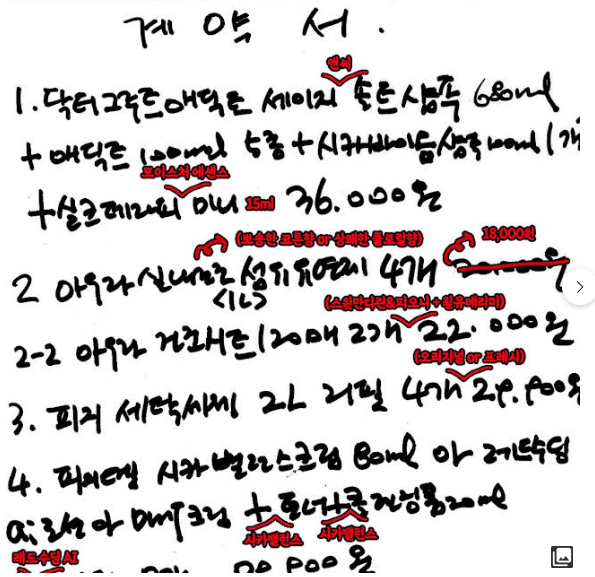 계약서.
앤씨
1. 닥터그루트 애딕트 세이지 솔트 샴푸 680ml
+ 애딕트 100ml 5종 + 시카바이옴샴푸 100ml 1개
모이스처에센스
+ 실크테라피 미니 15ml 36.000원
(뽀송한 코튼향 or 상쾌한 플로럴향) 18,000원
2 아우라 실내건조 섬유유연제 4개 20.000원
<1L>
(스윗만다린&피오니 + 윌유메리미)
2-2 아우라 건조시트 120매 2개 22.000원
(오리지널 or 프레시)
3. 피지 세탁세제 2L 리필 4개 29.900원
4. 피지오겔 시카밸런스크림 80ml 아 레드수딩
ai 로션 아 DMT크림 + 토너 클렌징폼 20ml
시카밸런스 시카밸런스
레드수딩AI